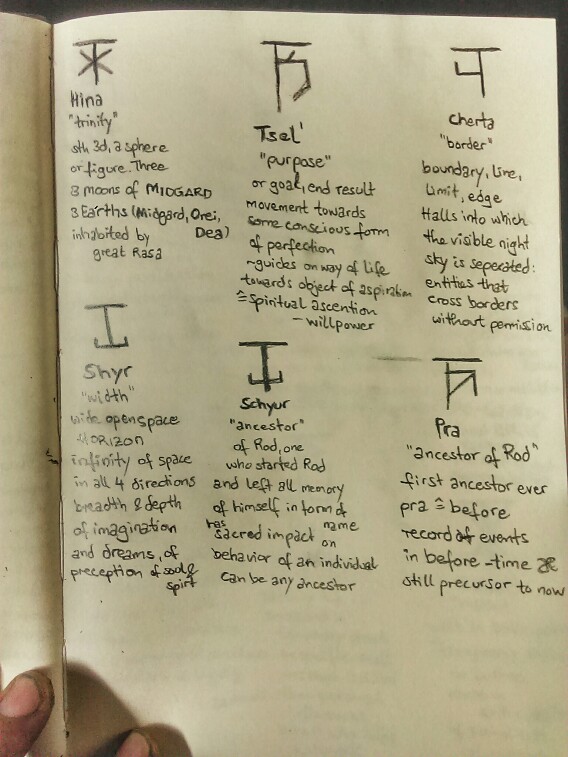 Hina
"trinity"
sth 3d, a sphere
or figure. Three
3 moons of MIDGARD
3 Earths (Midgard, Orei,
inhabited by Dea)
great Rasa
Tsel'
"purpose"
or goal, end result
movement towards
some conscious form
of perfection
~guides on way of life
towards object of aspiration
≙ spiritual ascention
- willpower
Cherta
"border"
boundary, line,
limit, edge
Halls into which
the visible night
sky is seperated:
entities that
cross borders
without permission
Shyr
"width"
wide open space
HORIZON
infinity of space
in all 4 directions
breadth & depth
of imagination
and dreams, of
preception of soul &
spirt
Schyur
"ancestor"
of Rod, one
who started Rod
and left all memory
of himself in form of
name
has sacred impact on
behavior of an individual
can be any ancestor
Pra
"ancestor of Rod"
first ancestor ever
pra ≙ before
record of events
in before-time
still precursor to now